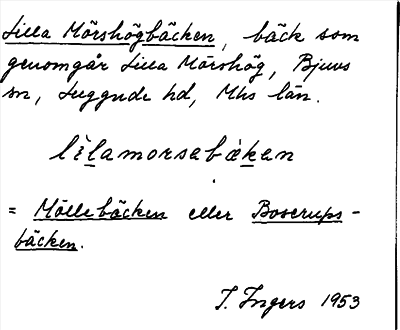 Lilla Mörshögbäcken, bäck som
genomgår Lilla Mörshög, Bjuvs
sn, Luggude hd, Mhs län.
lìlamorsabǽkan
= Möllebäcken eller Boserups-
bäcken.
I. Ingers 1953